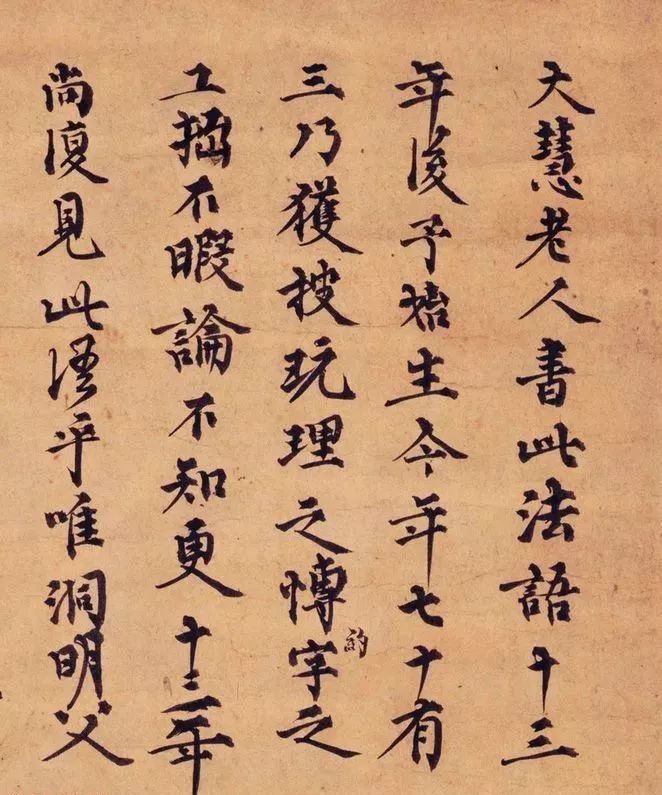 大慧老人書此法語十三
年後予始生今年七十有
三乃獲披玩理之愽約字之
工拙不暇論不知更十三年
尚復見此語乎唯洞明父